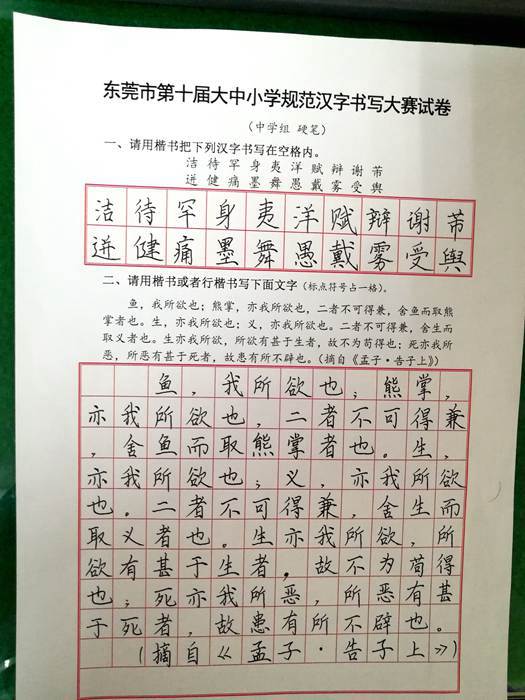 东莞市第十届大中小学规范汉字书写大赛试卷
（中学组 硬笔）
一、请用楷书把下列汉字书写在空格内。
洁 待 罕 身 夷 洋 赋 辩 谢 芾
迸 健 痛 墨 舞 愚 戴 雾 受 舆
洁待罕身夷洋赋辩谢芾
迸健痛墨舞愚戴雾受舆
二、请用楷书或者行楷书写下面文字（标点符号占一格）。
鱼，我所欲也；熊掌，亦我所欲也，二者不可得兼，舍鱼而取熊
掌者也。生，亦我所欲也；义，亦我所欲也。二者不可得兼，舍生而
取义者也。生亦我所欲，所欲有甚于生者，故不为苟得也；死亦我所
恶，所恶有甚于死者，故患有所不辟也。（摘自《孟子·告子上》）
鱼，我所欲也；熊掌，
亦我所欲也，二者不可得兼
，舍鱼而取熊掌者也。生，
亦我所欲也；义，亦我所欲
也。二者不可得兼，舍生而
取义者也。生亦我所欲，所
欲有甚于生者，故不为苟得
也；死亦我所恶，所恶有甚
于死者，故患有所不辟也。
（摘自《孟子·告子上》）